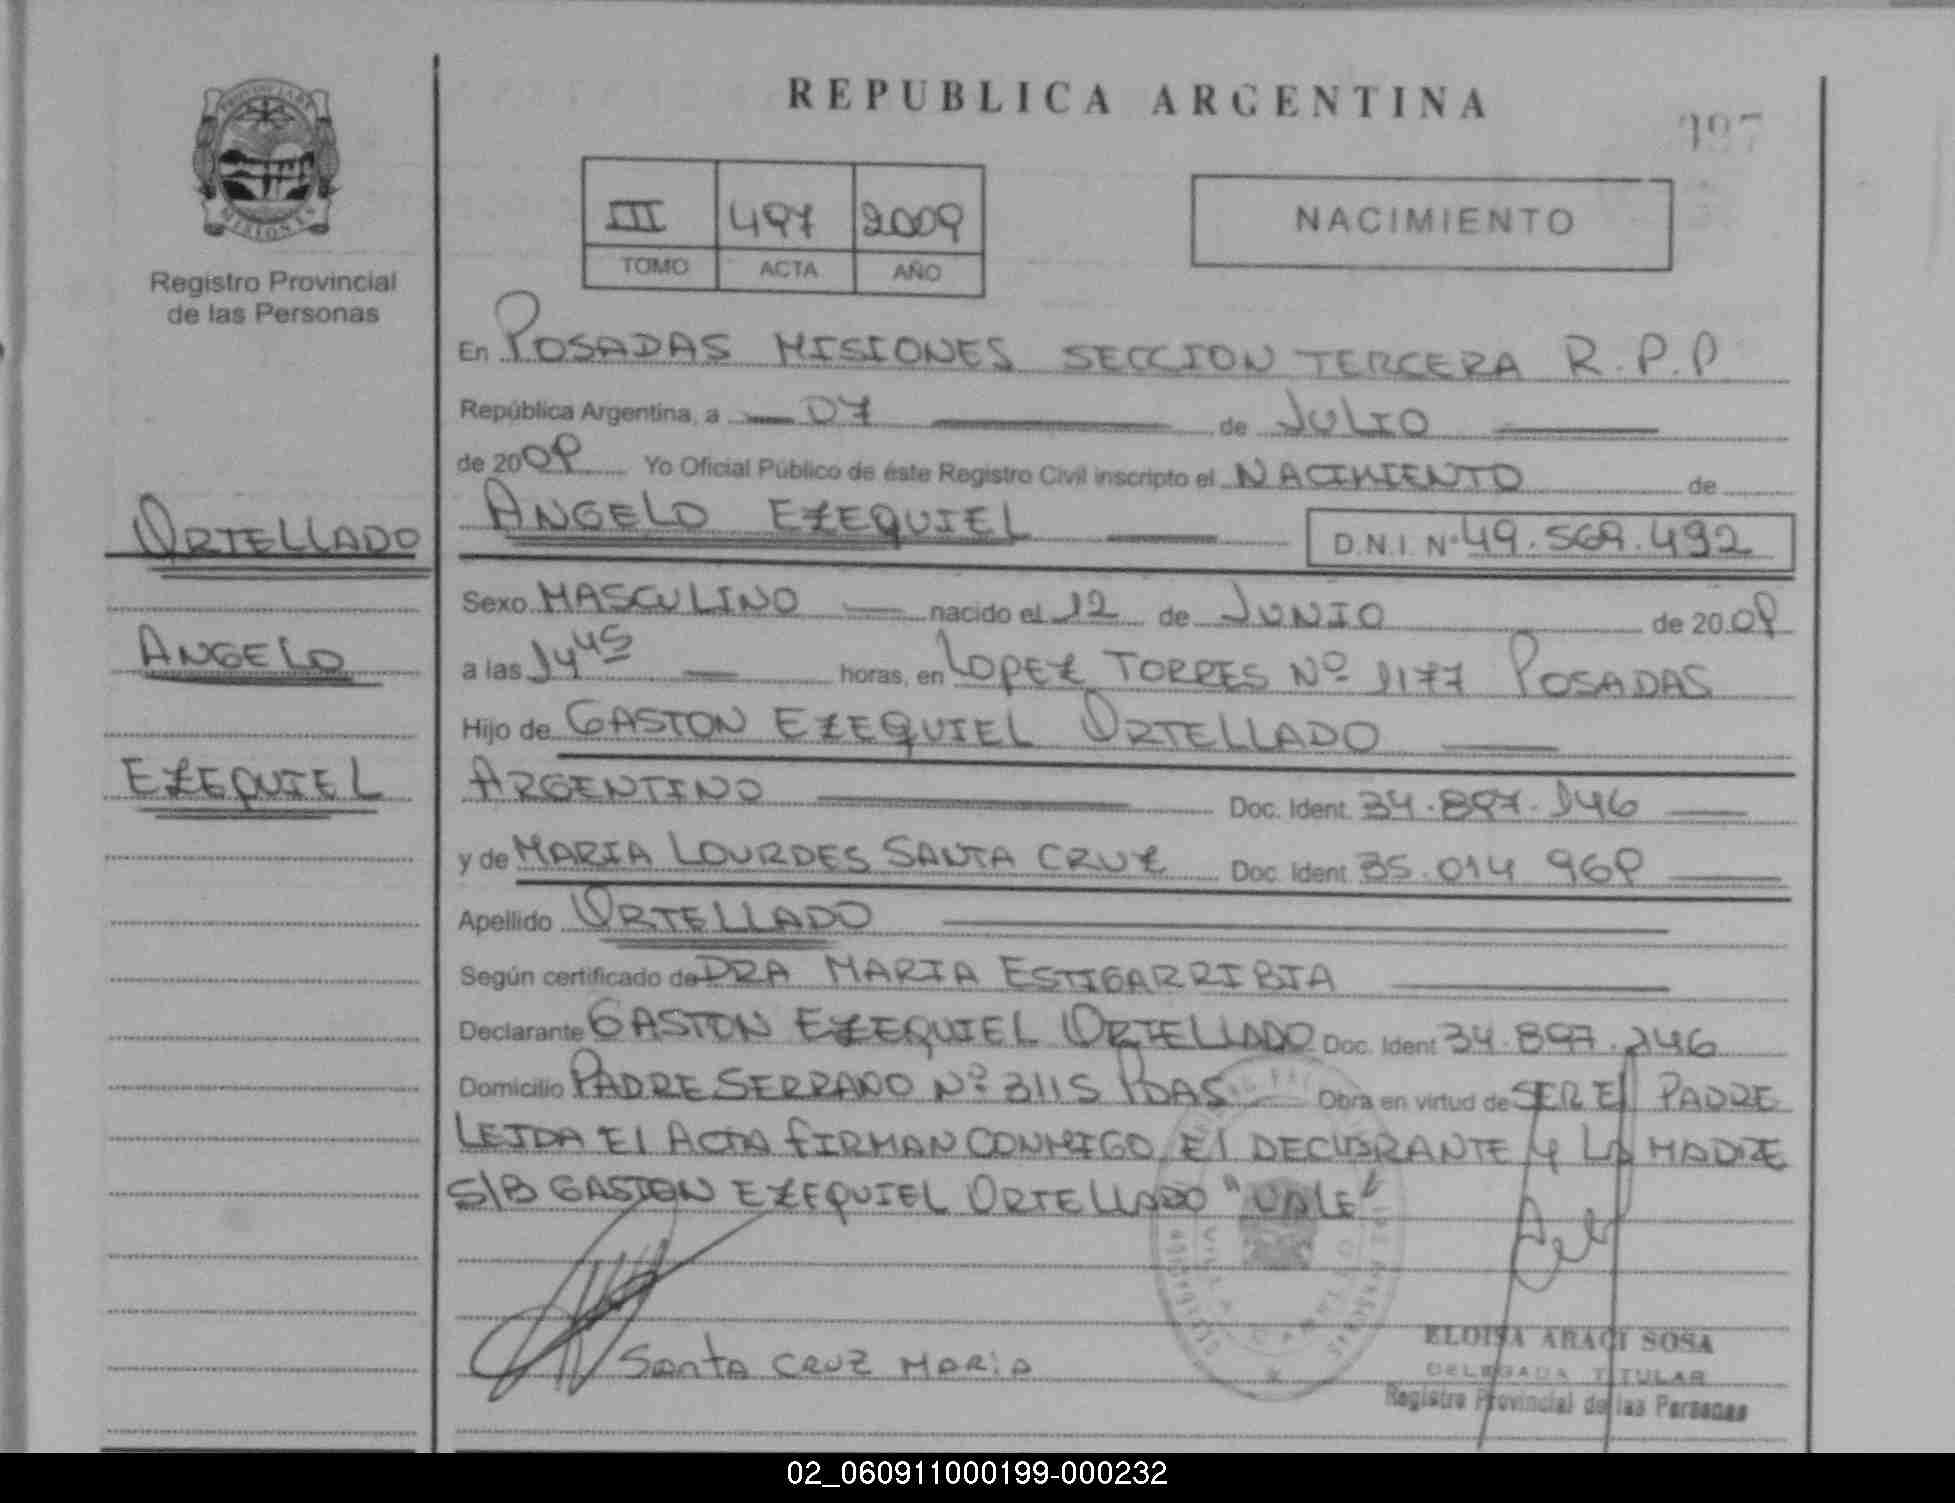 REPUBLICA ARGENTINA
497
PROVINCIA DE
MISIONES
Registro Provincial
de las Personas
III 497 2009
TOMO ACTA AÑO
NACIMIENTO
En POSADAS MISIONES SECCION TERCERA R.P.P
República Argentina, a 07 de JULIO
de 2009 Yo Oficial Público de éste Registro Civil inscripto el NACIMIENTO de
ORTELLADO
ANGELO EZEQUIEL D.N.I. Nº 49.569.492
Sexo MASCULINO nacido el 12 de JUNIO de 2009
ANGELO
a las 14 45 horas, en LOPEZ TORRES Nº 1177 POSADAS
Hijo de GASTON EZEQUIEL ORTELLADO
EZEQUIEL
ARGENTINO Doc. Ident. 34.897.146
y de MARIA LOURDES SANTA CRUZ Doc. Ident. 35.014 969
Apellido ORTELLADO
Según certificado de DRA MARIA ESTIGARRIBIA
Declarante GASTON EZEQUIEL ORTELLADO Doc. Ident 34.897.146
Domicilio PADRE SERRANO Nº 3115 PDAS Obra en virtud de SER El PADRE
LEIDA El ACTA FIRMAN CONMIGO El DECLARANTE Y LA MADRE
S/B GASTON EZEQUIEL ORTELLADO "VALE"
Santa CRUZ MARIA
ELOISA ARACI SOSA
DELEGADA TITULAR
Registro Provincial de las Personas
02_060911000199-000232